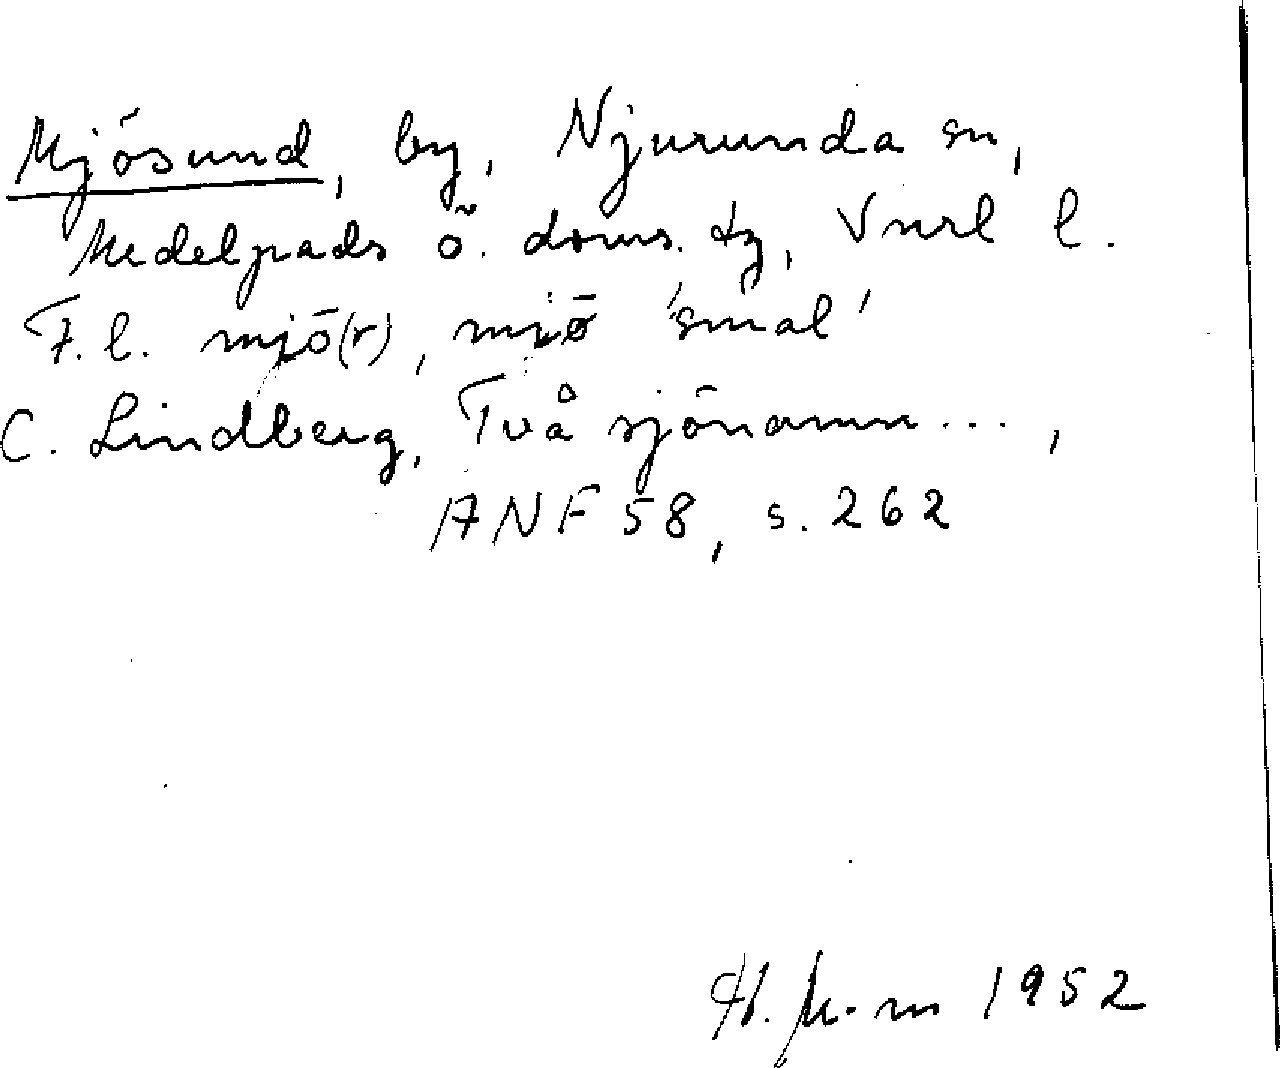 Mjösund, by, Njurunda sn,
Medelpads ö. doms. tg, Vnrl l.
F.l. mjö(r), mjö 'smal'
C. Lindberg, Två sjönamn...,
ANF 58, s. 262
H. M-m 1952